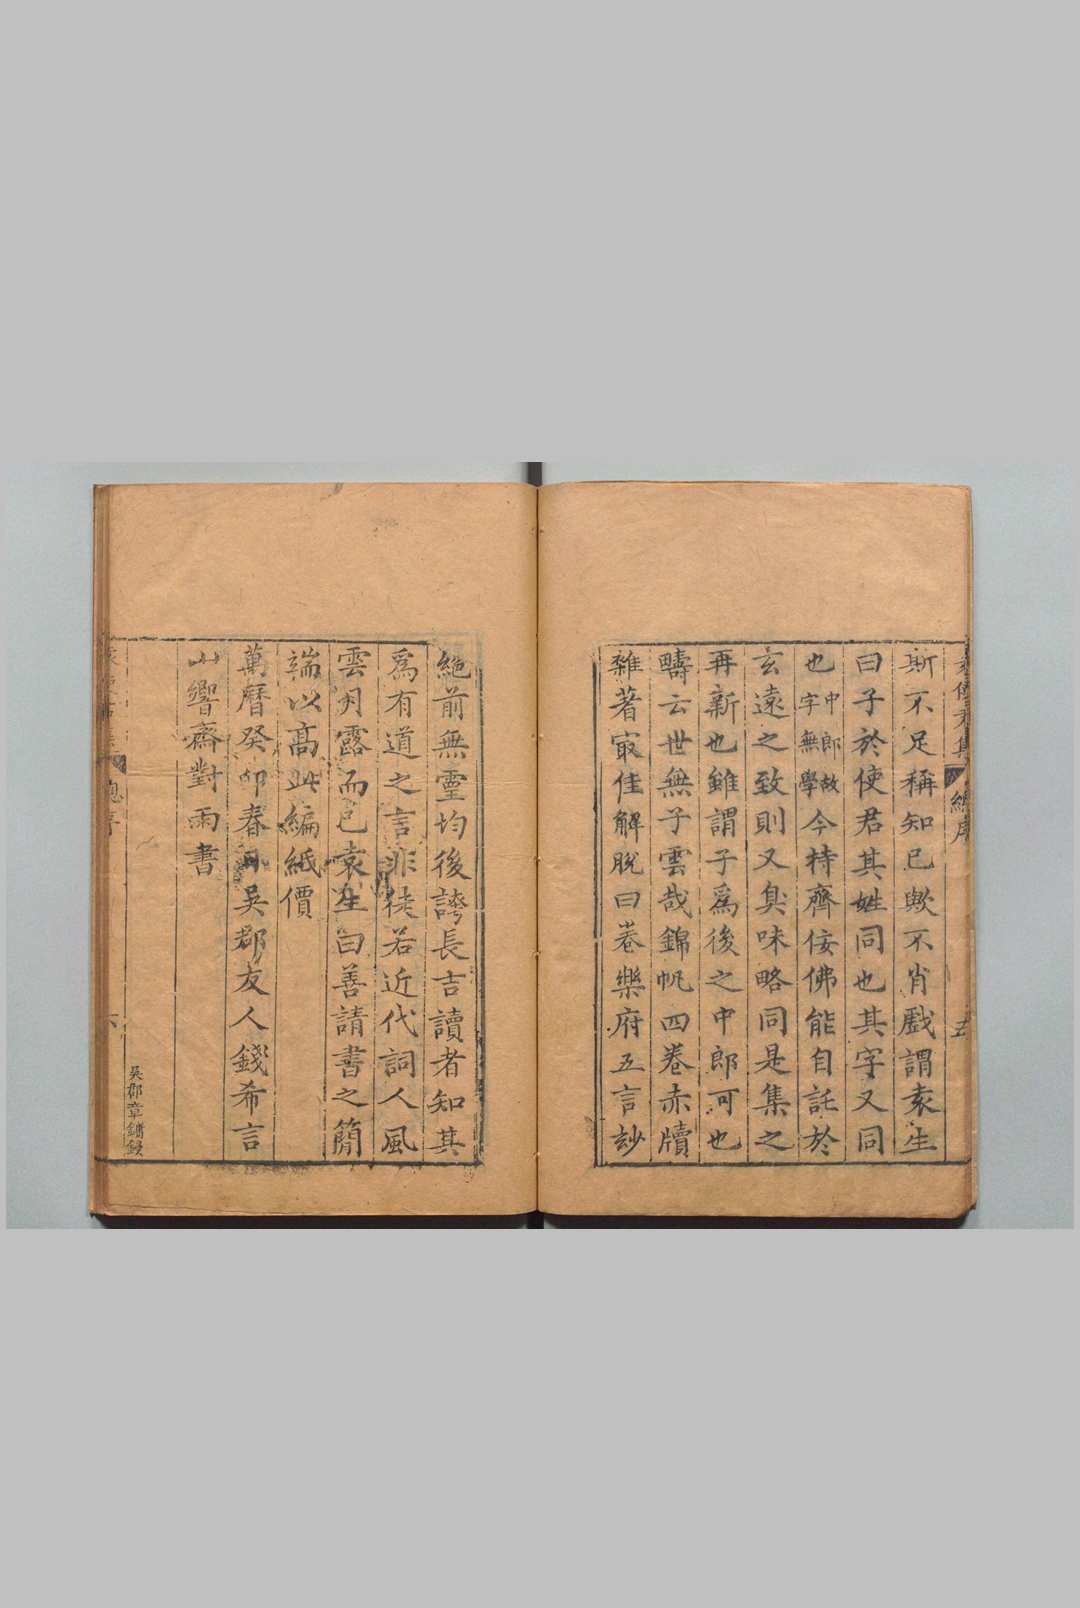 斯不足稱知已歟不肖戲謂袁生
曰子於使君其姓同也其字又同
也中郎故字無學今持齋佞佛能自託於
玄遠之致則又臭味略同是集之
再新也雖謂子爲後之中郎可也
疇云世無子雲哉錦帆四卷赤牘
雜著㝡佳解脫曰卷樂府五言玅
絕前無靈均後誇長吉讀者知其
爲有道之言非徒若近代詞人風
雲月露而已袁生曰善請書之簡
端以高此編紙價
萬曆癸卯春吳郡友人錢希言
山響齋對雨書
吳郡章鏞鋟
總序
五
總序
六